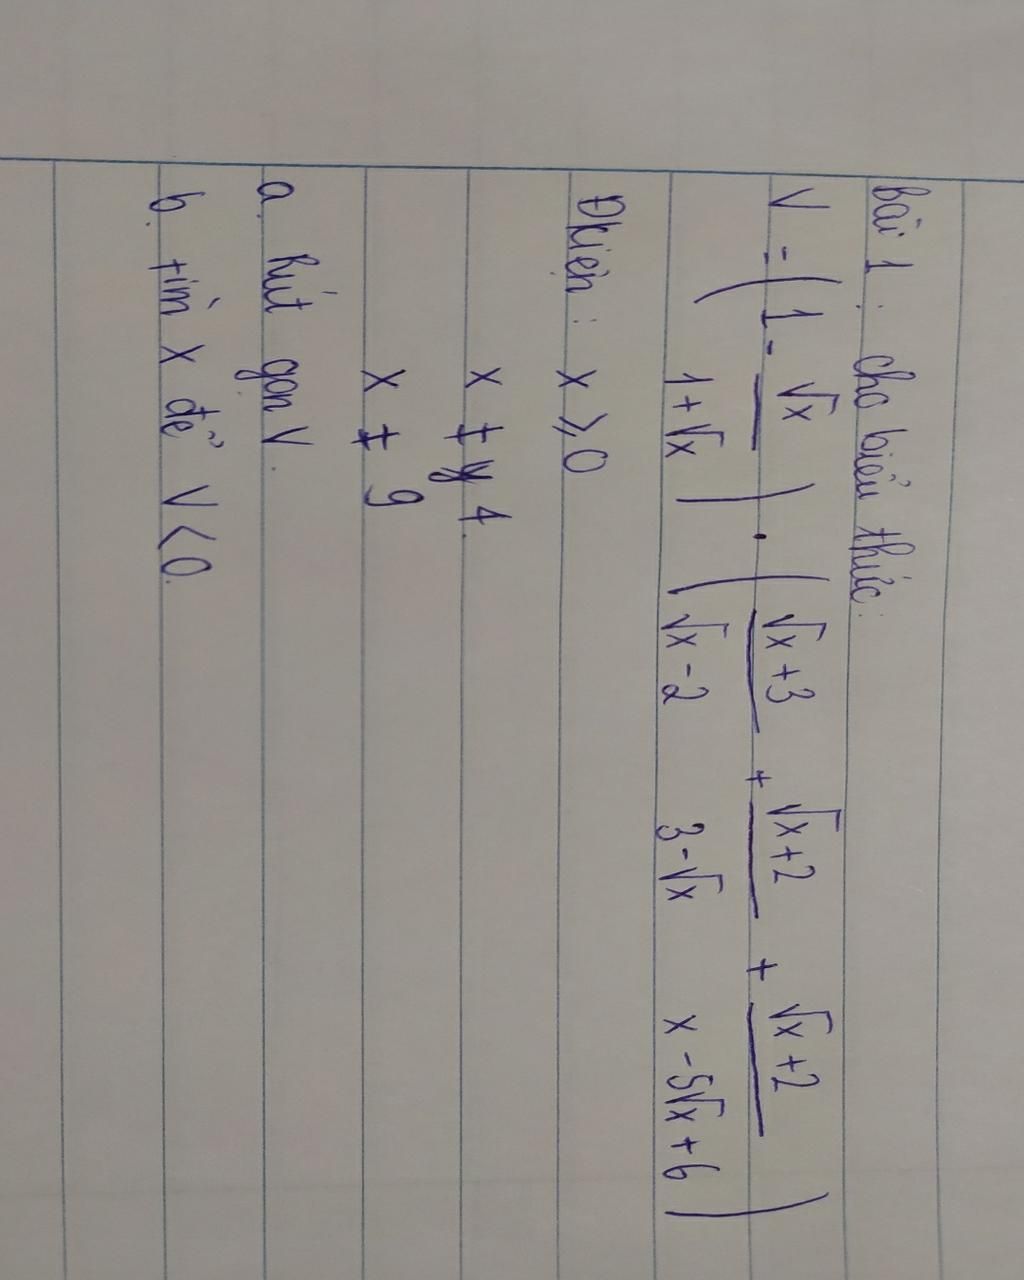 Bài 1: cho biểu thức:
V = (1 - √x / 1+√x) . (√x+3 / √x-2 + √x+2 / 3-√x + √x+2 / x-5√x+6)
Đkiện: x ≥ 0
x ≠ 4
x ≠ 9
a. Rút gọn V.
b. tìm x để V < 0.